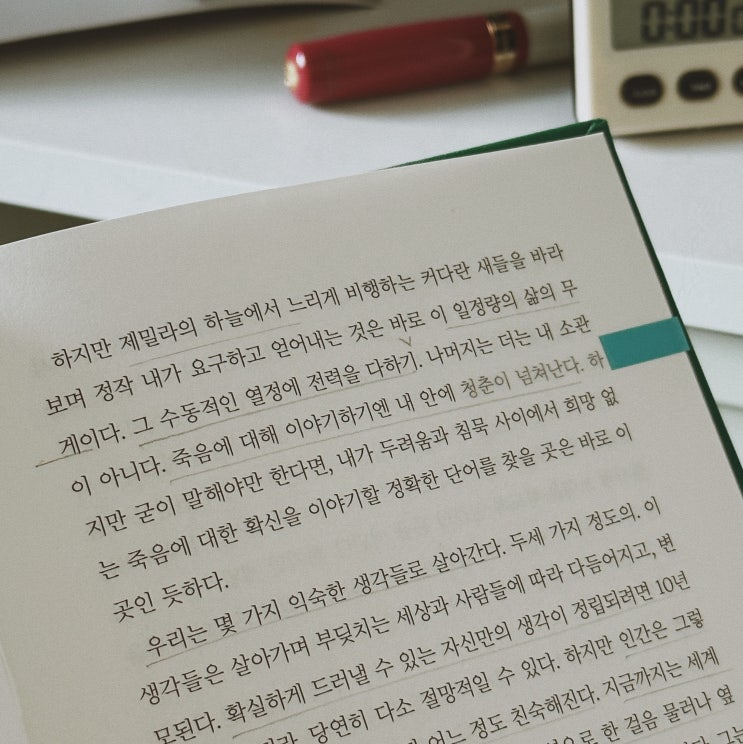 0:00
하지만 제밀라의 하늘에서 느리게 비행하는 커다란 새들을 바라
보며 정작 내가 요구하고 얻어내는 것은 바로 이 일정량의 삶의 무
게이다. 그 수동적인 열정에 전력을 다하기. 나머지는 더는 내 소관
이 아니다. 죽음에 대해 이야기하기엔 내 안에 청춘이 넘쳐난다. 하
지만 굳이 말해야만 한다면, 내가 두려움과 침묵 사이에서 희망 없
는 죽음에 대한 확신을 이야기할 정확한 단어를 찾을 곳은 바로 이
곳인 듯하다.
우리는 몇 가지 익숙한 생각들로 살아간다. 두세 가지 정도의. 이
생각들은 살아가며 부딪치는 세상과 사람들에 따라 다듬어지고, 변
모된다. 확실하게 드러낼 수 있는 자신만의 생각이 정립되려면 10년
당연히 다소 절망적일 수 있다. 하지만 인간은 그렇
어느 정도 친숙해진다. 지금까지는 세계
한 걸음 물러나 옆